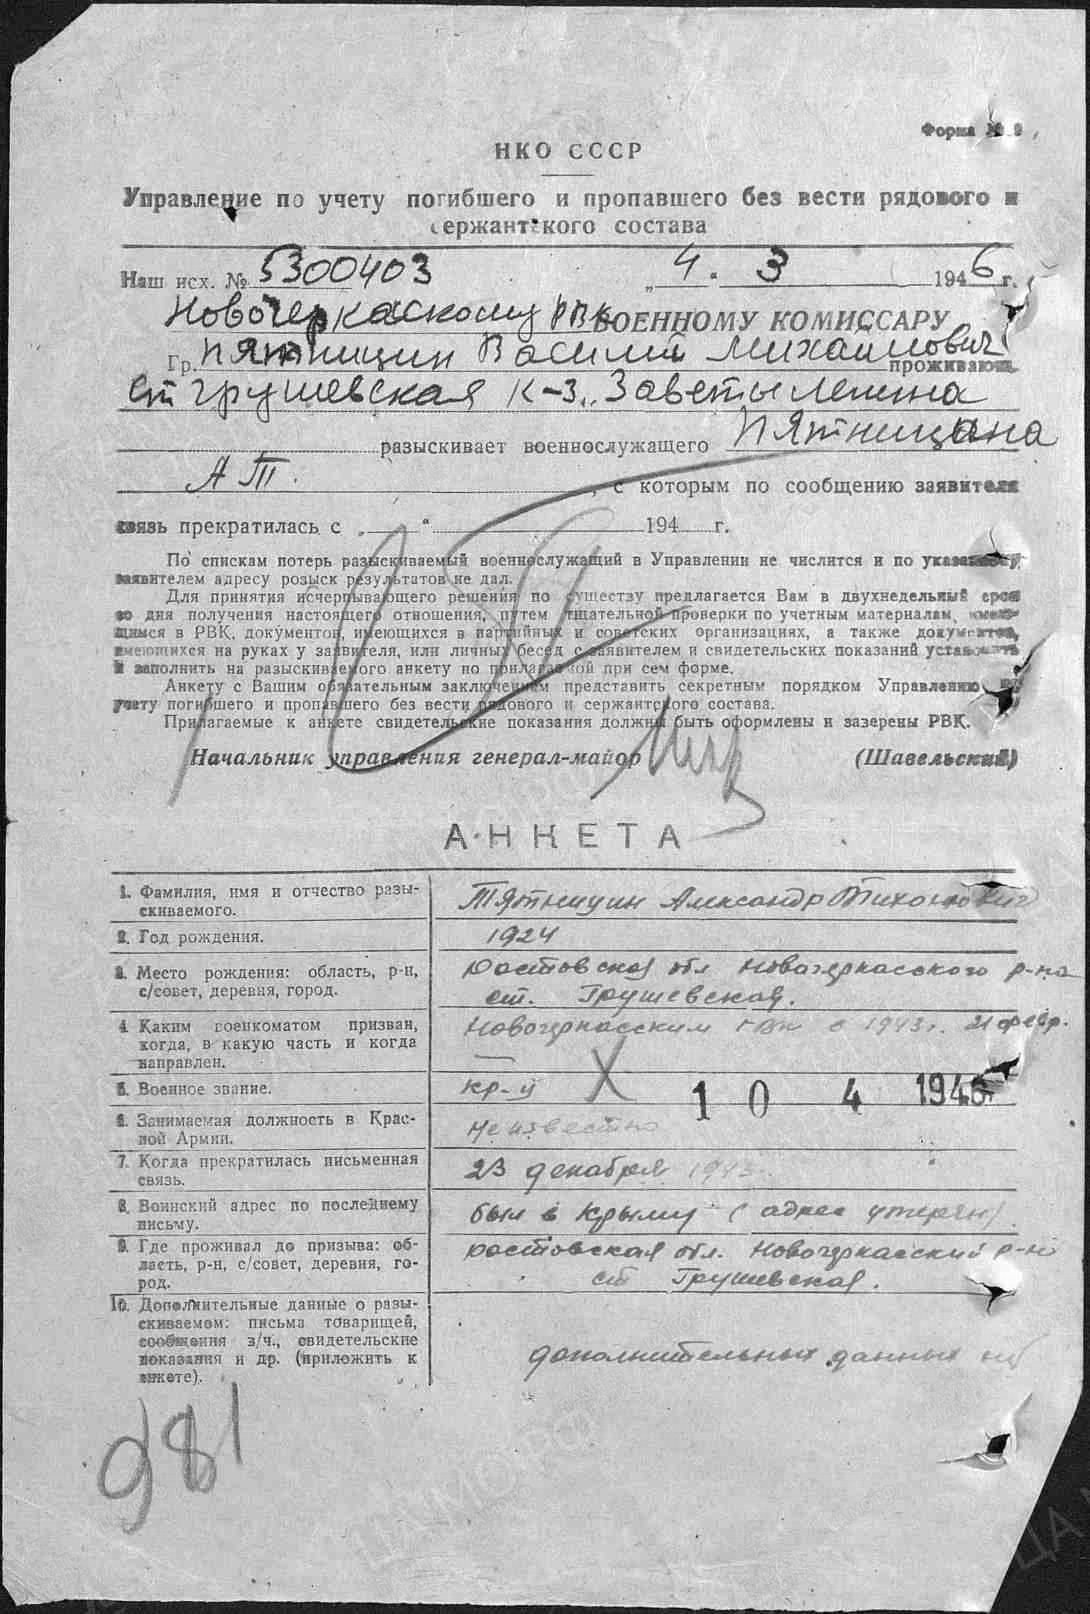 Форма № 9
НКО СССР
Управление по учету погибшего и пропавшего без вести рядового и
сержантского состава
Наш исх. № 5300403 „ 4. 3 1946 г.
Новочеркаскому рвк ВОЕННОМУ КОМИССАРУ
Гр. Пятницин Василий Михайлович проживающ.
ст Грушевская к-з „Заветы Ленина
разыскивает военнослужащего Пятницина
А Т. , с которым по сообщению заявителя
связь прекратилась с „ “ 194 г.
По спискам потерь разыскиваемый военнослужащий в Управлении не числится и по указанному
заявителем адресу розыск результатов не дал.
Для принятия исчерпывающего решения по существу предлагается Вам в двухнедельный срок
со дня получения настоящего отношения, путем тщательной проверки по учетным материалам, имею-
щимся в РВК, документов, имеющихся в партийных и советских организациях, а также документов,
имеющихся на руках у заявителя, или личных бесед с заявителем и свидетельских показаний установить
и заполнить на разыскиваемого анкету по прилагаемой при сем форме.
Анкету с Вашим обязательным заключением представить секретным порядком Управлению по
учету погибшего и пропавшего без вести рядового и сержантского состава.
Прилагаемые к анкете свидетельские показания должны быть оформлены и заверены РВК.
Начальник управления генерал-майор (Шавельский)
АНКЕТА
1. Фамилия, имя и отчество разы-
скиваемого.
Пятницин Александр Тихонович
2. Год рождения.
1924
3. Место рождения: область, р-н,
с/совет, деревня, город.
Ростовская обл Новочеркасского р-на
ст. Грушевская.
4. Каким военкоматом призван,
когда, в какую часть и когда
направлен.
Новочеркасским рвк с 1943г. 21 февр.
5. Военное звание.
кр-ц
10 4 1946
6. Занимаемая должность в Крас-
ной Армии.
Неизвестно
7. Когда прекратилась письменная
связь.
23 декабря 1943
8. Воинский адрес по последнему
письму.
был в Крыму (адрес утерян)
9. Где проживал до призыва: об-
ласть, р-н, с/совет, деревня, го-
род.
Ростовская обл. Новочеркасский р-н
ст Грушевская.
10. Дополнительные данные о разы-
скиваемом: письма товарищей,
сообщения в/ч., свидетельские
показания и др. (приложить к
анкете).
дополнительных данных нет
981